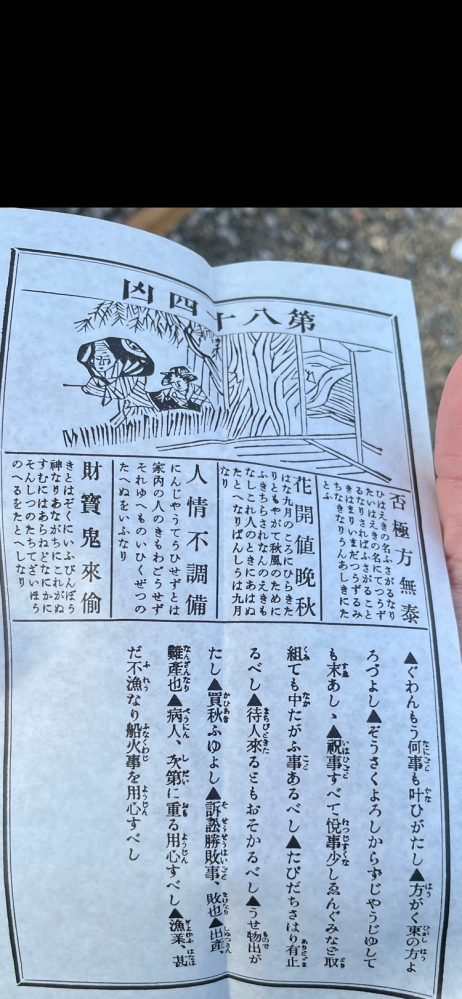 第八十四凶
否極方無泰
ひはえきの名ふさがるなり
たいはえきの名にてつうず
るなりさればふさがること
きはまりいまだつうずるみ
ちなきなりうんあしきにた
とふ
花開値晩秋
はな九月のころにひらきた
りともやがて秋風のために
ふきちらされなんのえきも
なしこれ人のときにあはぬ
たとへなりばんしうは九月
なり
人情不調備
にんじやうてうひせずとは
家内の人のきもわごうせず
それゆへものいひくぜつの
たへぬをいふなり
財寳鬼來偷
きとはぞくにいふびんぼう
神なりあながちにこれがぬ
すむにはあらねどなにかに
そんしつのたちてざいほう
のへるをたとへしなり
▲ぐわんもう何事も叶ひがたし▲方がく東の方よ
ろづよし▲ぞうさくよろしからずじやうじゆして
も末あしゝ▲祝事すべて悦事少しゑんぐみなど取
組ても中たがふ事あるべし▲たびだちさはり有止
るべし▲待人來るともおそかるべし▲うせ物出が
たし▲買秋ふゆよし▲訴訟勝敗事、敗也▲出產、
難產也▲病人、次第に重る用心すべし▲漁業、甚
だ不漁なり船火事を用心すべし